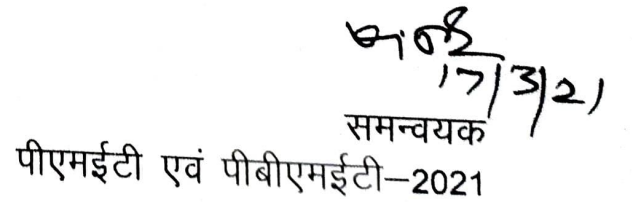 17/3/21
समन्वयक
पीएमईटी एवं पीबीएमईटी–2021